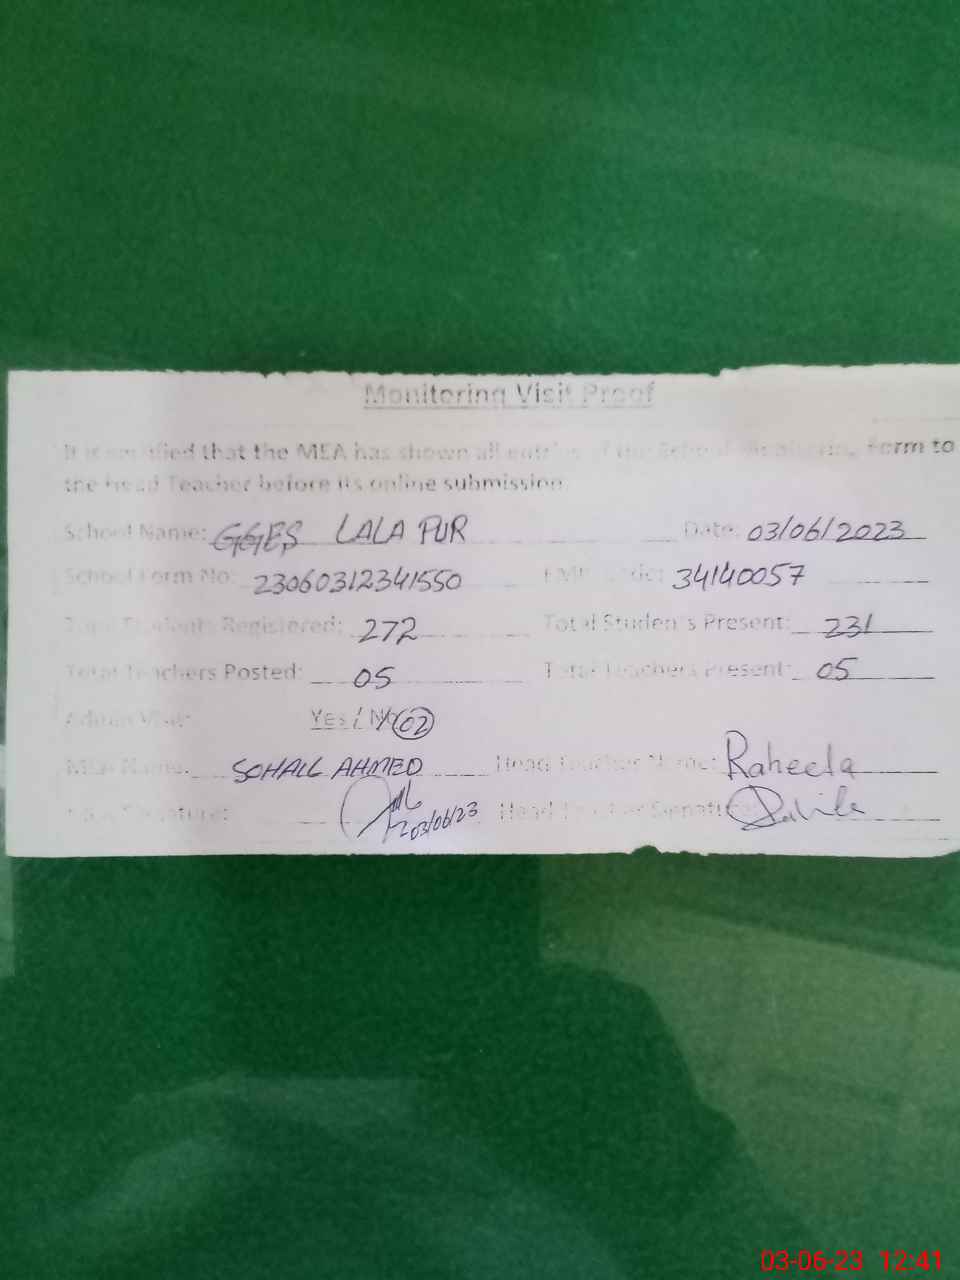 Monitoring Visit Proof
It is certified that the MEA has shown all entries of the School Monitoring Form to
the Head Teacher before its online submission
School Name: GGES LALA PUR Date: 03/06/2023
School Form No: 23060312341550 EMIS Code: 34140057
Total Students Registered: 272 Total Students Present: 231
Total Teachers Posted: 05 Total Teachers Present: 05
Admin Visit: Yes / No 02
MEA Name: SOHAIL AHMED Head Teacher Name: Raheela
MEA Signature: 03/06/23 Head Teacher Signature:
03-06-23 12:41